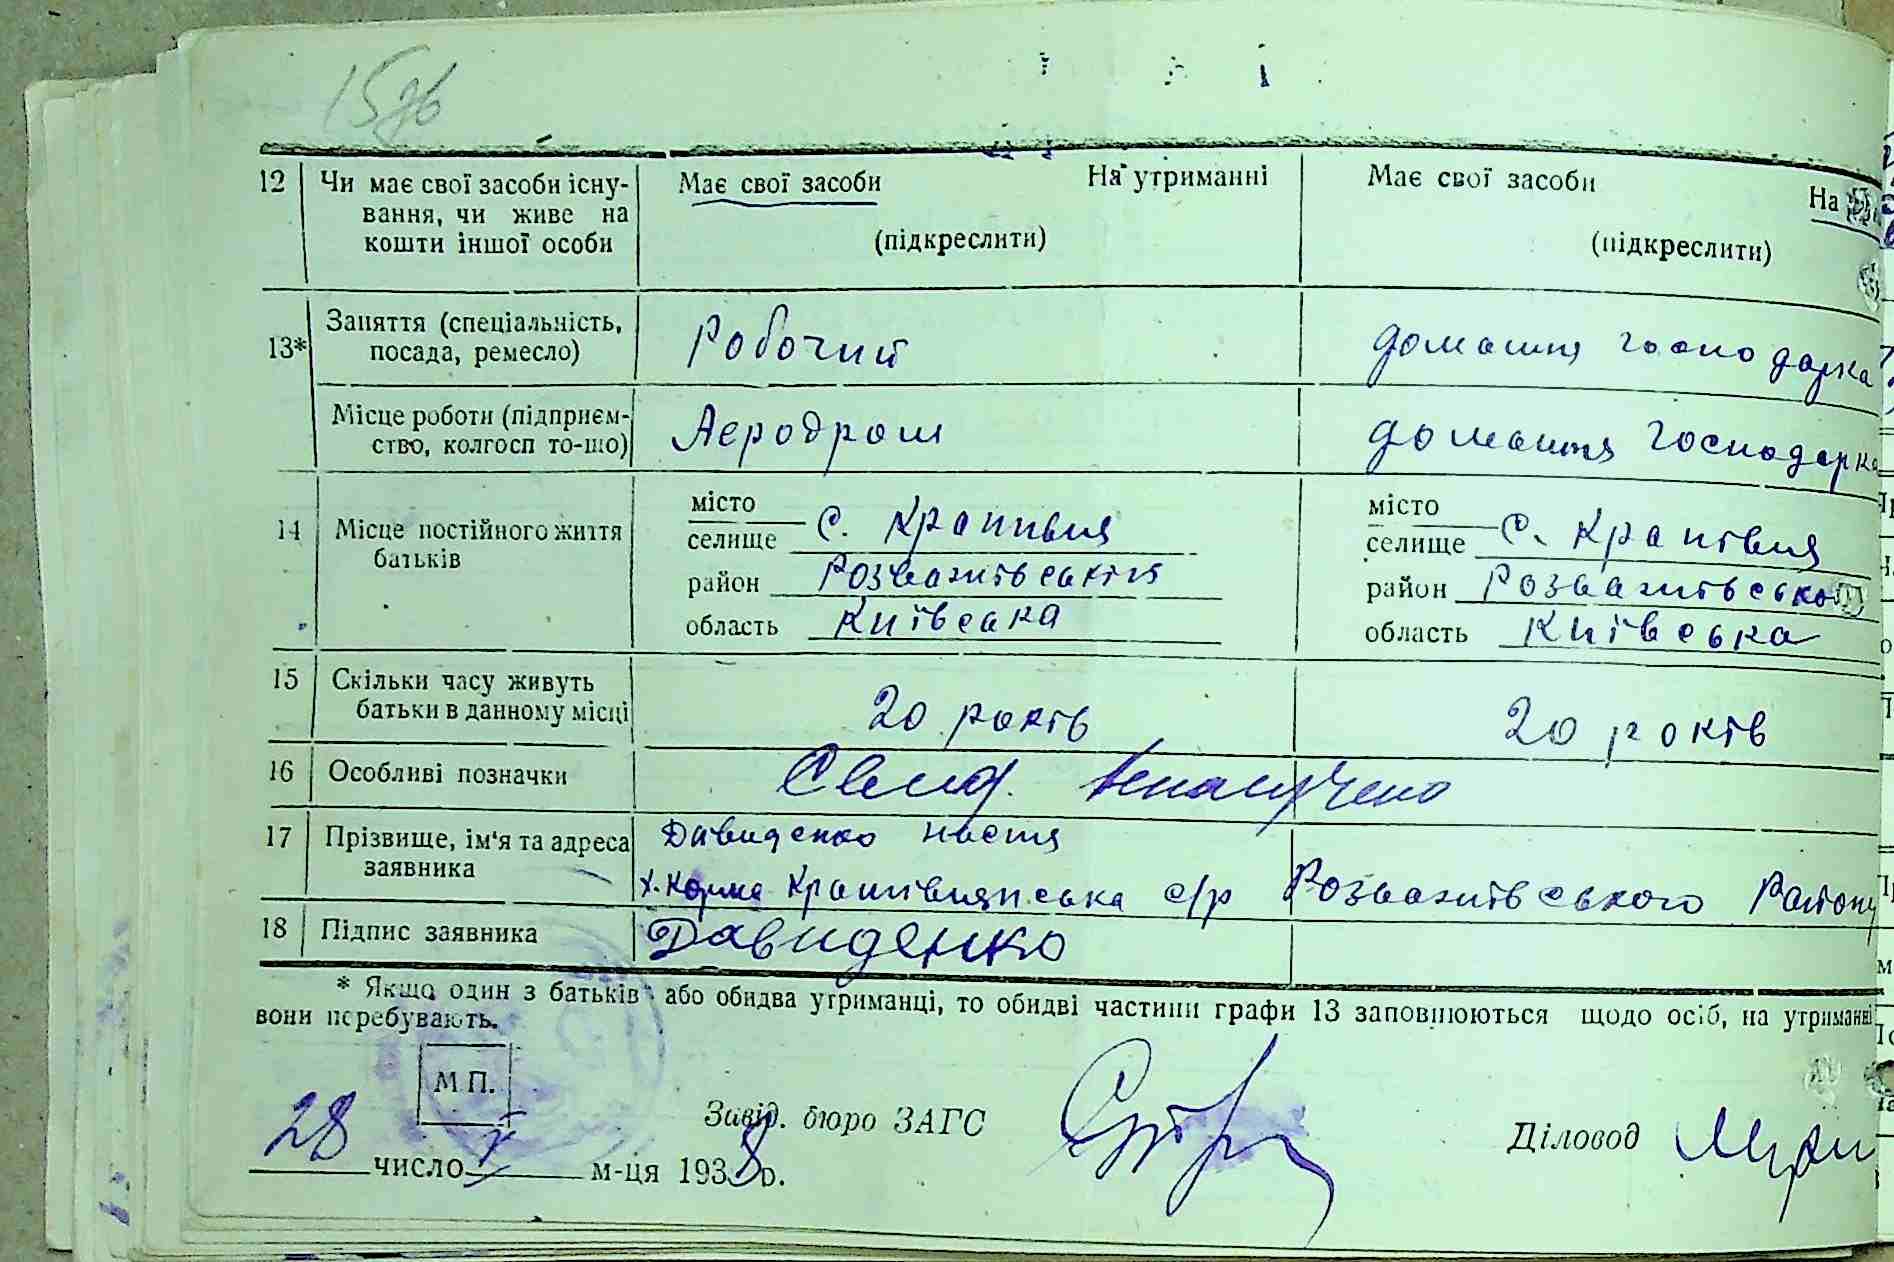 12 Чи має свої засоби існу-
вання, чи живе на
кошти іншої особи
Має свої засоби На утриманні
(підкреслити)
Має свої засоби На
(підкреслити)
13* Заняття (спеціальність,
посада, ремесло)
Робочий
домашня господарка
Місце роботи (підприєм-
ство, колгосп то-що)
Аеродром
домашня господарка
14 Місце постійного життя
батьків
місто
селище с. Крапивня
район Розважівський
область Київська
місто
селище с. Крапівня
район Розважівсько
область Київська
15 Скільки часу живуть
батьки в данному місці
20 років
20 років
16 Особливі позначки
17 Прізвище, ім'я та адреса
заявника
Давиденко Настя
х. Корма Крапівнянська с/р Розважівського Району
18 Підпис заявника
Давиденко
* Якщо один з батьків або обидва утриманці, то обидві частини графи 13 заповнюються щодо осіб, на утриманні
вони перебувають.
М П.
Завід. бюро ЗАГС
Діловод
28 число V м-ця 1938 р.